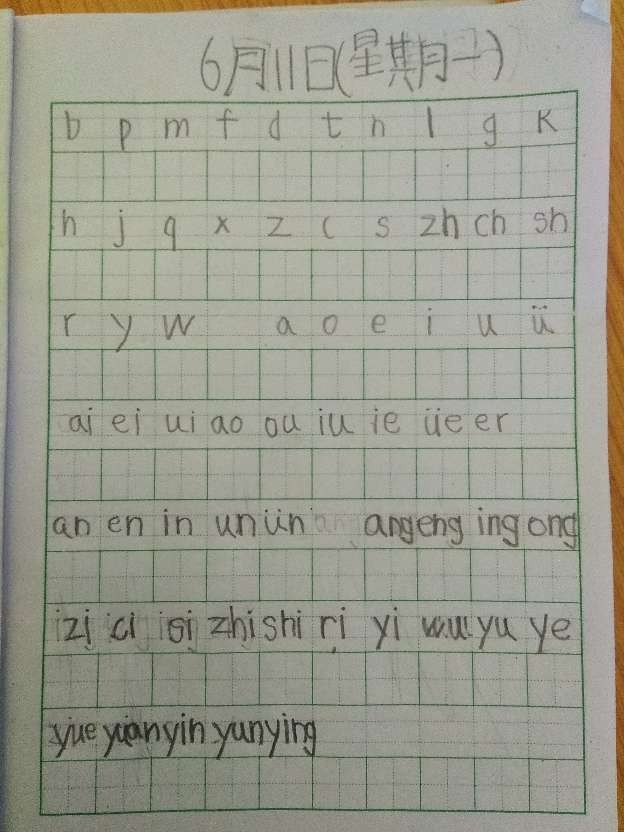 6月11日(星期一)
b p m f d t n l g k
h j q x z c s zh ch sh
r y w a o e i u ü
ai ei ui ao ou iu ie üe er
an en in un ün ang eng ing ong
zi ci si zhi shi ri yi wu yu ye
yue yuan yin yun ying